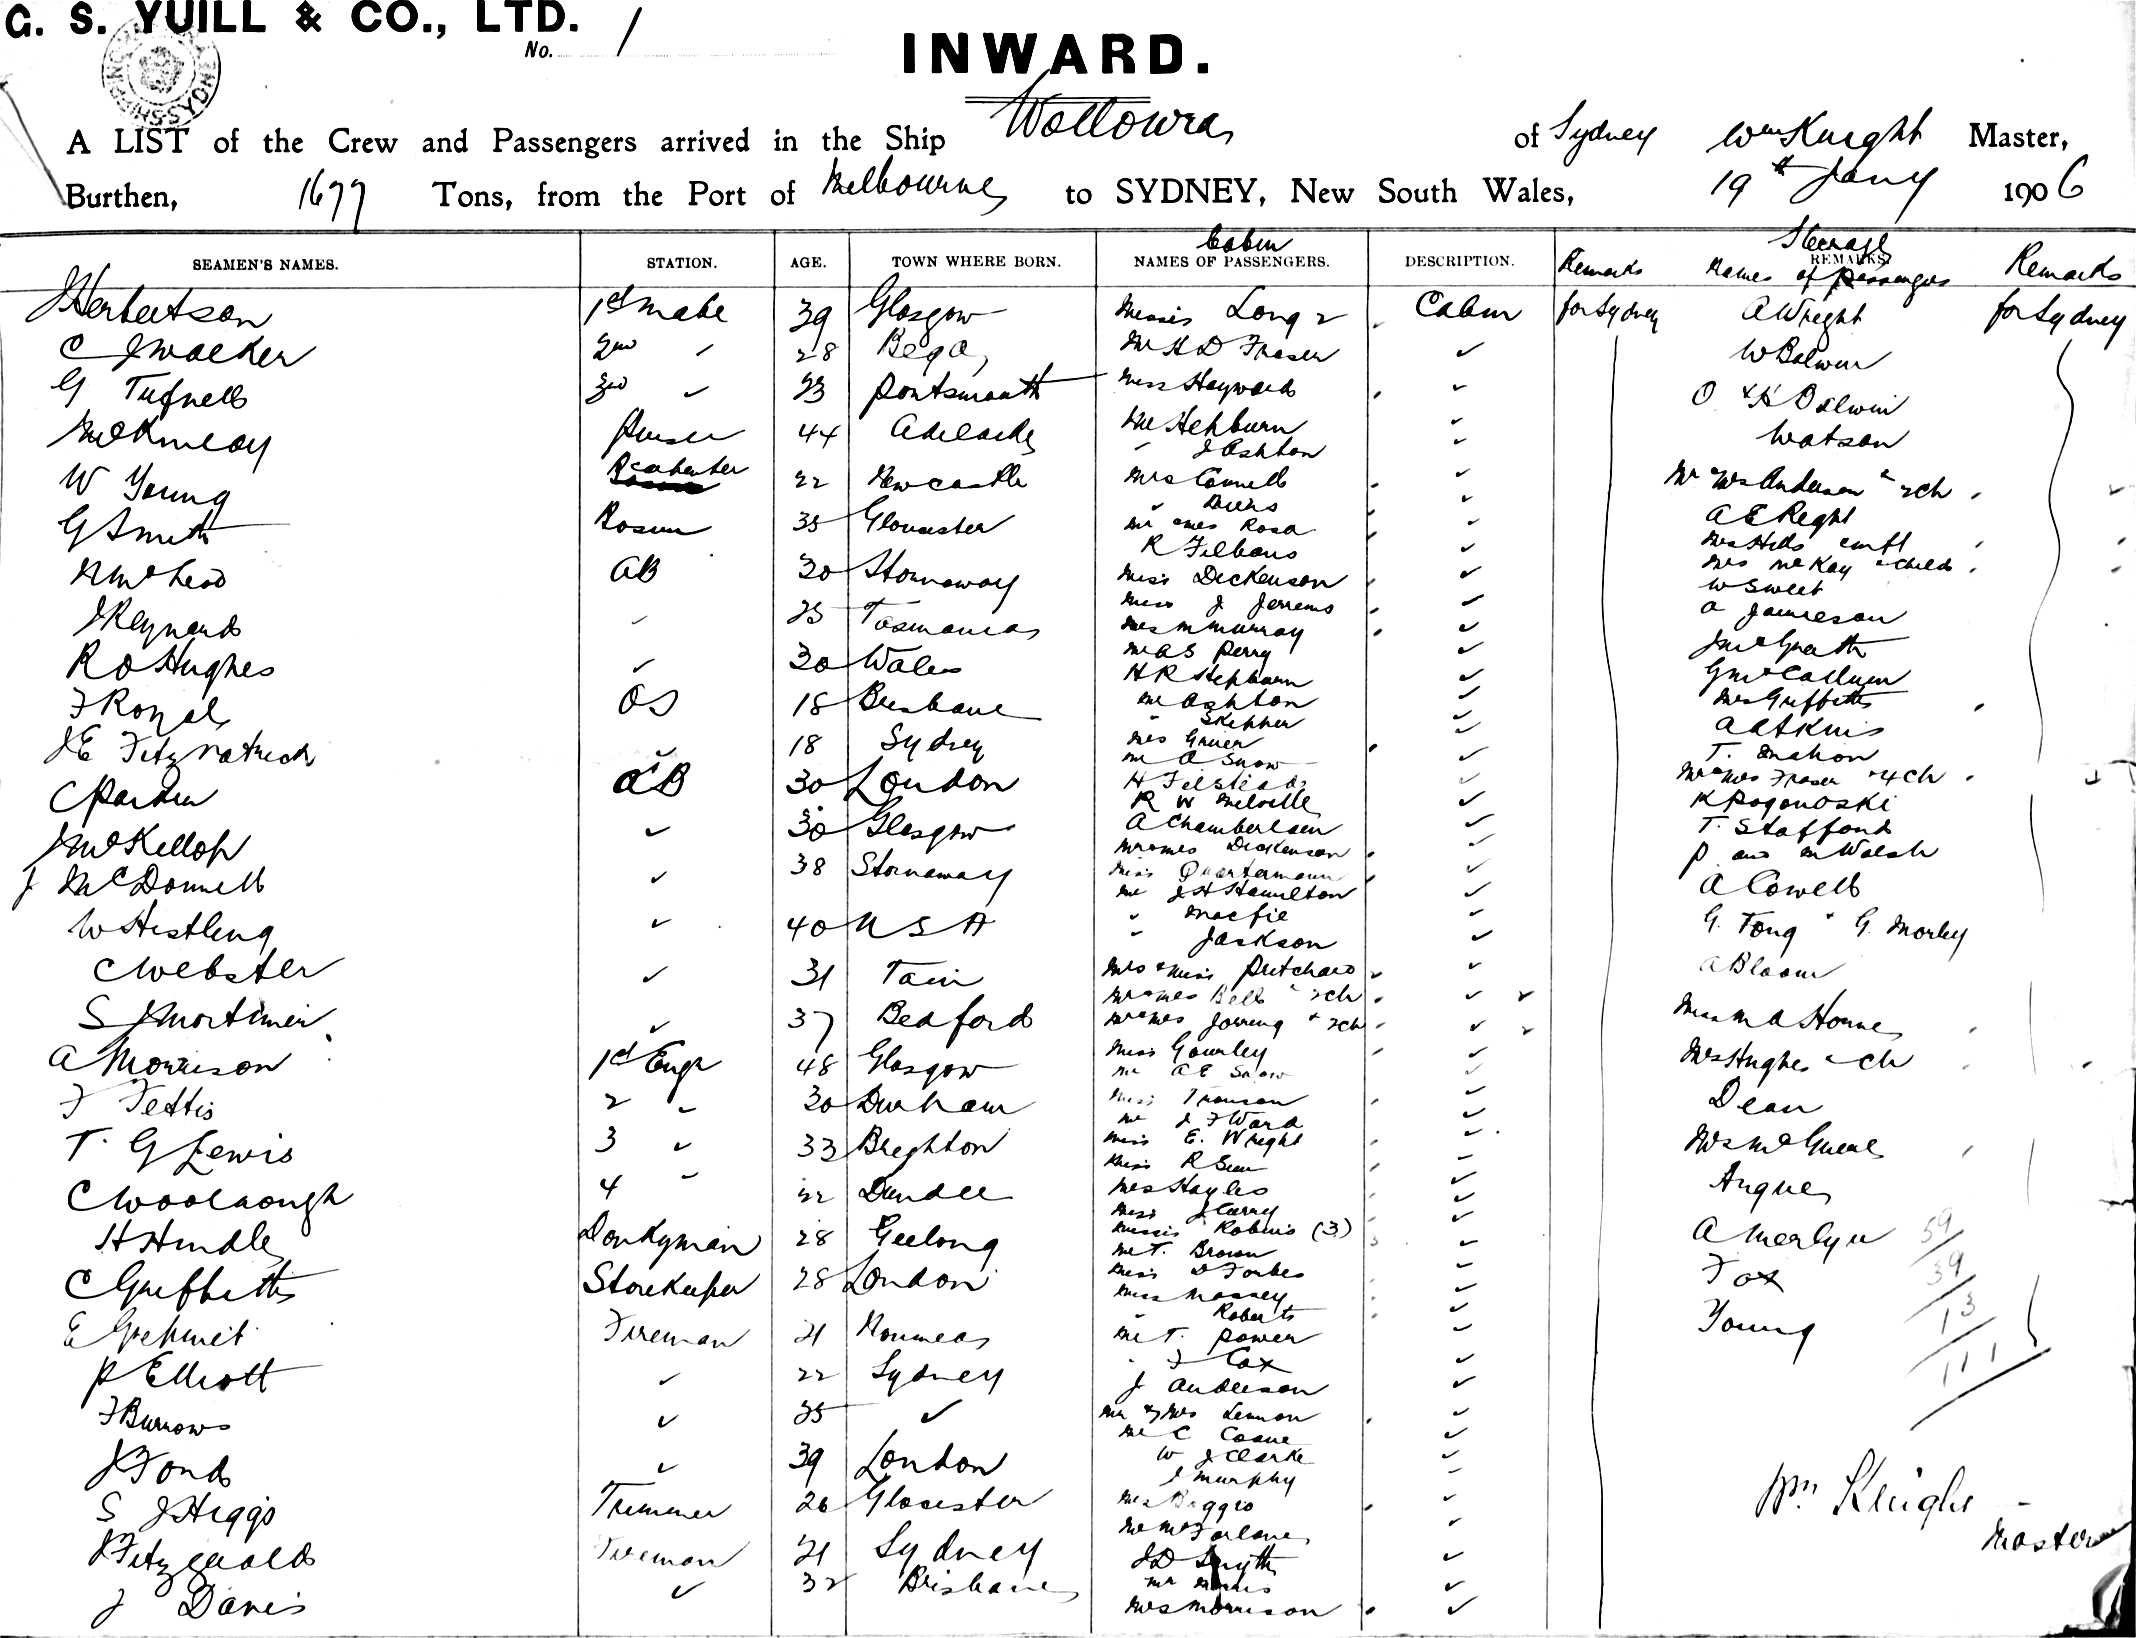 G. S. YUILL & CO., LTD.
No. 1
INWARD.
A LIST of the Crew and Passengers arrived in the Ship Wollowra of Sydney Wm Knight Master,
Burthen, 1677 Tons, from the Port of Melbourne to SYDNEY, New South Wales, 19th Jany 1906
SEAMEN'S NAMES. STATION. AGE. TOWN WHERE BORN. Cabin NAMES OF PASSENGERS. DESCRIPTION. Remarks Steerage REMARKS Names of passengers Remarks
J Herbertson 1st mate 39 Glasgow Misses Long 2 Cabin for Sydney A Wright for Sydney
C J Walker 2nd ✓ 28 Bega Mr H D Fraser ✓ W Balwin
G Tufnell 3rd ✓ 23 Portsmouth Miss Hayward ✓ O & H Balwin
McKinlay Purser 44 Adelaide Mr Hepburn ✓ Watson
J Ashton ✓
W Young 22 Newcastle Mrs Connell ✓ Mr Mrs Anderson & 2ch
G Smith Bosun 35 Gloucester Mr & Mrs Rosa ✓ A E Reght
R Filbans ✓ Mrs Hills & inft
A McLeod AB 30 Stornaway Miss Dickenson ✓ Mrs McKay & child
W Sweet
J Reynards ✓ 25 Tasmania Miss J Jerrems ✓ A Jamieson
Mrs M Murray ✓
R O Hughes ✓ 30 Wales Mr A S Perry ✓ J McGrath
H R Hepburn ✓ G McCallum
F Royal OS 18 Brisbane Mr Ashton ✓ Mrs Griffiths
Skipper ✓ A Atkins
J E Fitzpatrick ✓ 18 Sydney Mrs Grier ✓ T. Mahon
Mr A Snow ✓
C Parden AB 30 London H Filstead ✓ Mr & Mrs Fraser & 4ch
R W Melville ✓ K Rogonoski
J McKellop ✓ 30 Glasgow A Chamberlain ✓ T. Stafford
Mr & Mrs Dickenson ✓ P and M Walsh
J McDonnell ✓ 38 Stornaway Miss Quartermann ✓ A Cowell
Mr J H Hamilton ✓
W Hestling ✓ 40 U S A Macfie ✓ G. Tong & G. Morley
Jackson ✓
C Webster ✓ 31 Tain Mrs & Miss Pritchard ✓ A Bloom
Mr & Mrs Bell & 2ch ✓
S J Mortimer ✓ 37 Bedford Mr & Mrs Jorring & 2ch ✓ Miss M A Horne
A Morrison 1st Engr 48 Glasgow Miss Gourley ✓ Mrs Hughes & ch
Mr A E Snow ✓
F Fettis 2 ✓ 30 Durham Miss Tronson ✓ Dean
Mr J F Ward ✓
T. G Lewis 3 ✓ 33 Brighton Miss E. Wright ✓ Mrs McGuene
Miss R Sim ✓
C Woolnough 4 ✓ 22 Dundee Mrs Hayles ✓ Angus
Miss J Carry ✓
H Hindle Donkyman 28 Geelong Misses Robins (3) ✓ A Merlyn 59
Mr T. Brown ✓
C Griffiths Storekeeper 28 London Miss D Forbes ✓ Fox 39
Miss Massey ✓ 13
E Grepmet Fireman 21 Noumea Roberts ✓ Young
Mr T. Power ✓ 111
P Elliott ✓ 22 Sydney F Cox ✓
J Anderson ✓
F Burrows ✓ 25 ✓ Mr & Mrs Lennon ✓
Mr C Coane ✓
J Ford ✓ 39 London W J Clarke ✓
J Murphy
S J Higgs Trimmer 26 Gloucester Mrs Baggio ✓ Wm Knight
Mr McFarlane ✓ Master
J Fitzgerald Fireman 21 Sydney J D Smyth ✓
J Davis ✓ 32 Brisbane Mr ✓
Mrs Morrison ✓